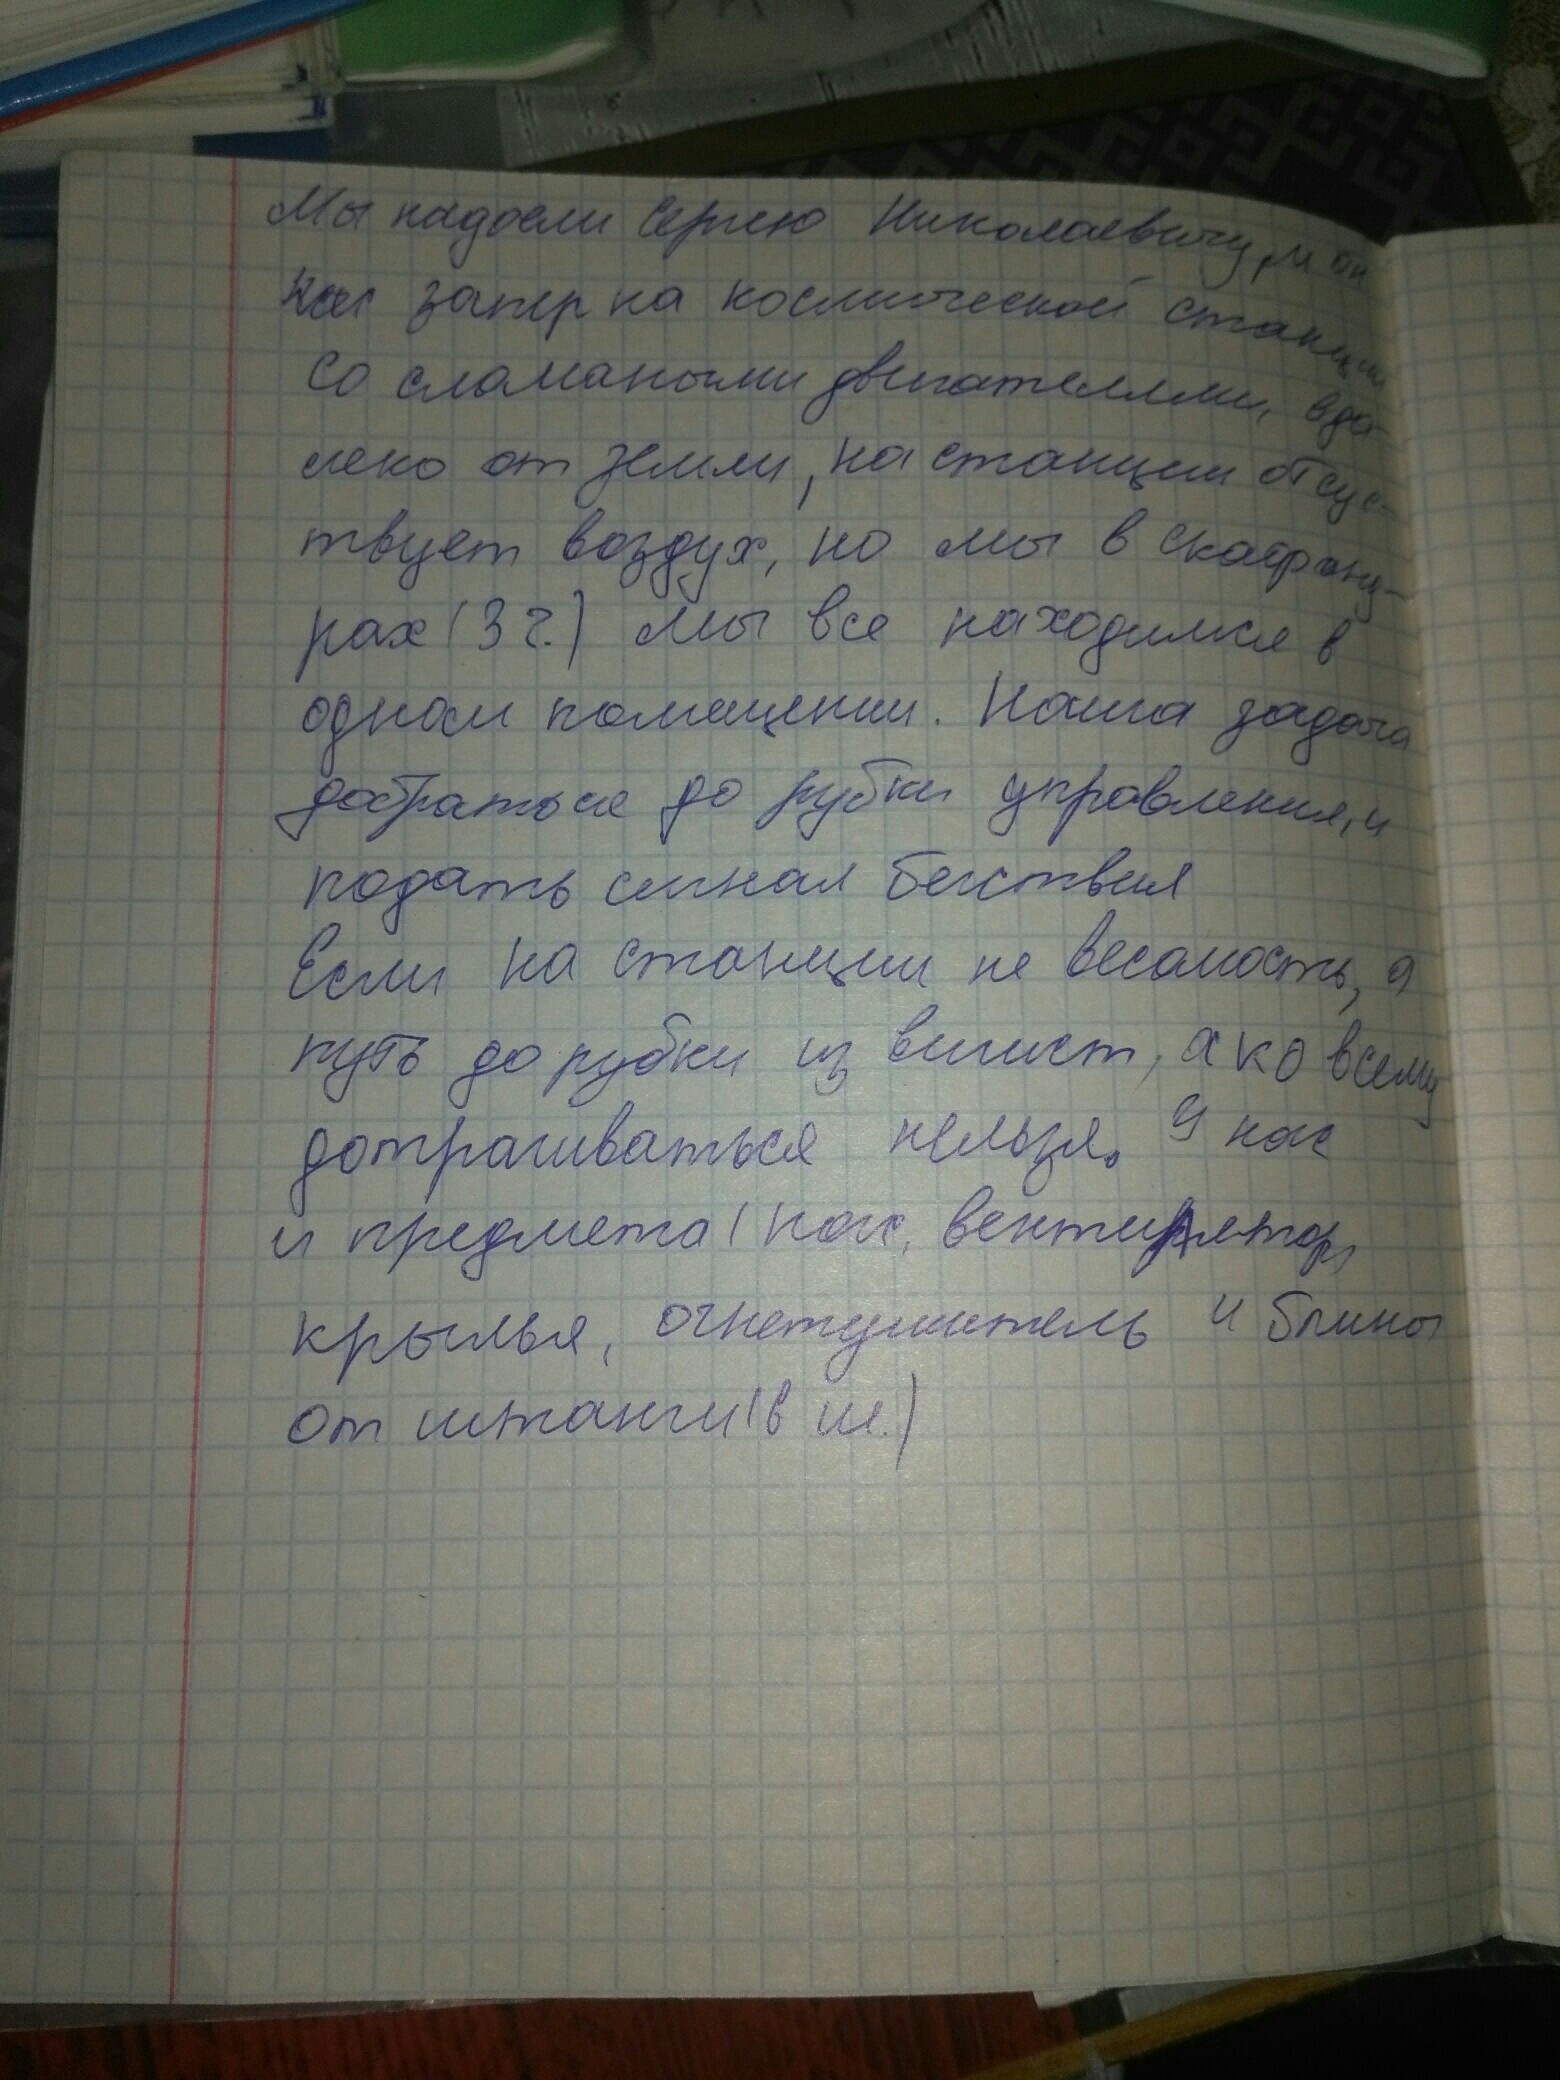 Мы надоели Сергею Николаевичу, и он
нас запер на космической станции
со сломаными двигателями, вда-
леко от земли, на станции отсус-
твует воздух, но мы в скафранд-
рах (3 ч.) Мы все находимся в
одном помещении. Наша задача
добраться до рубки управления, и
подать сигнал бегствия
Если на станции не весомость, а
путь до рубки из вигист, а ко всему
дотрагиваться нельзя. У нас
4 предмета (нас, вентилятор,
крылья, огнетушитель и блины
от штанги (в ш.)